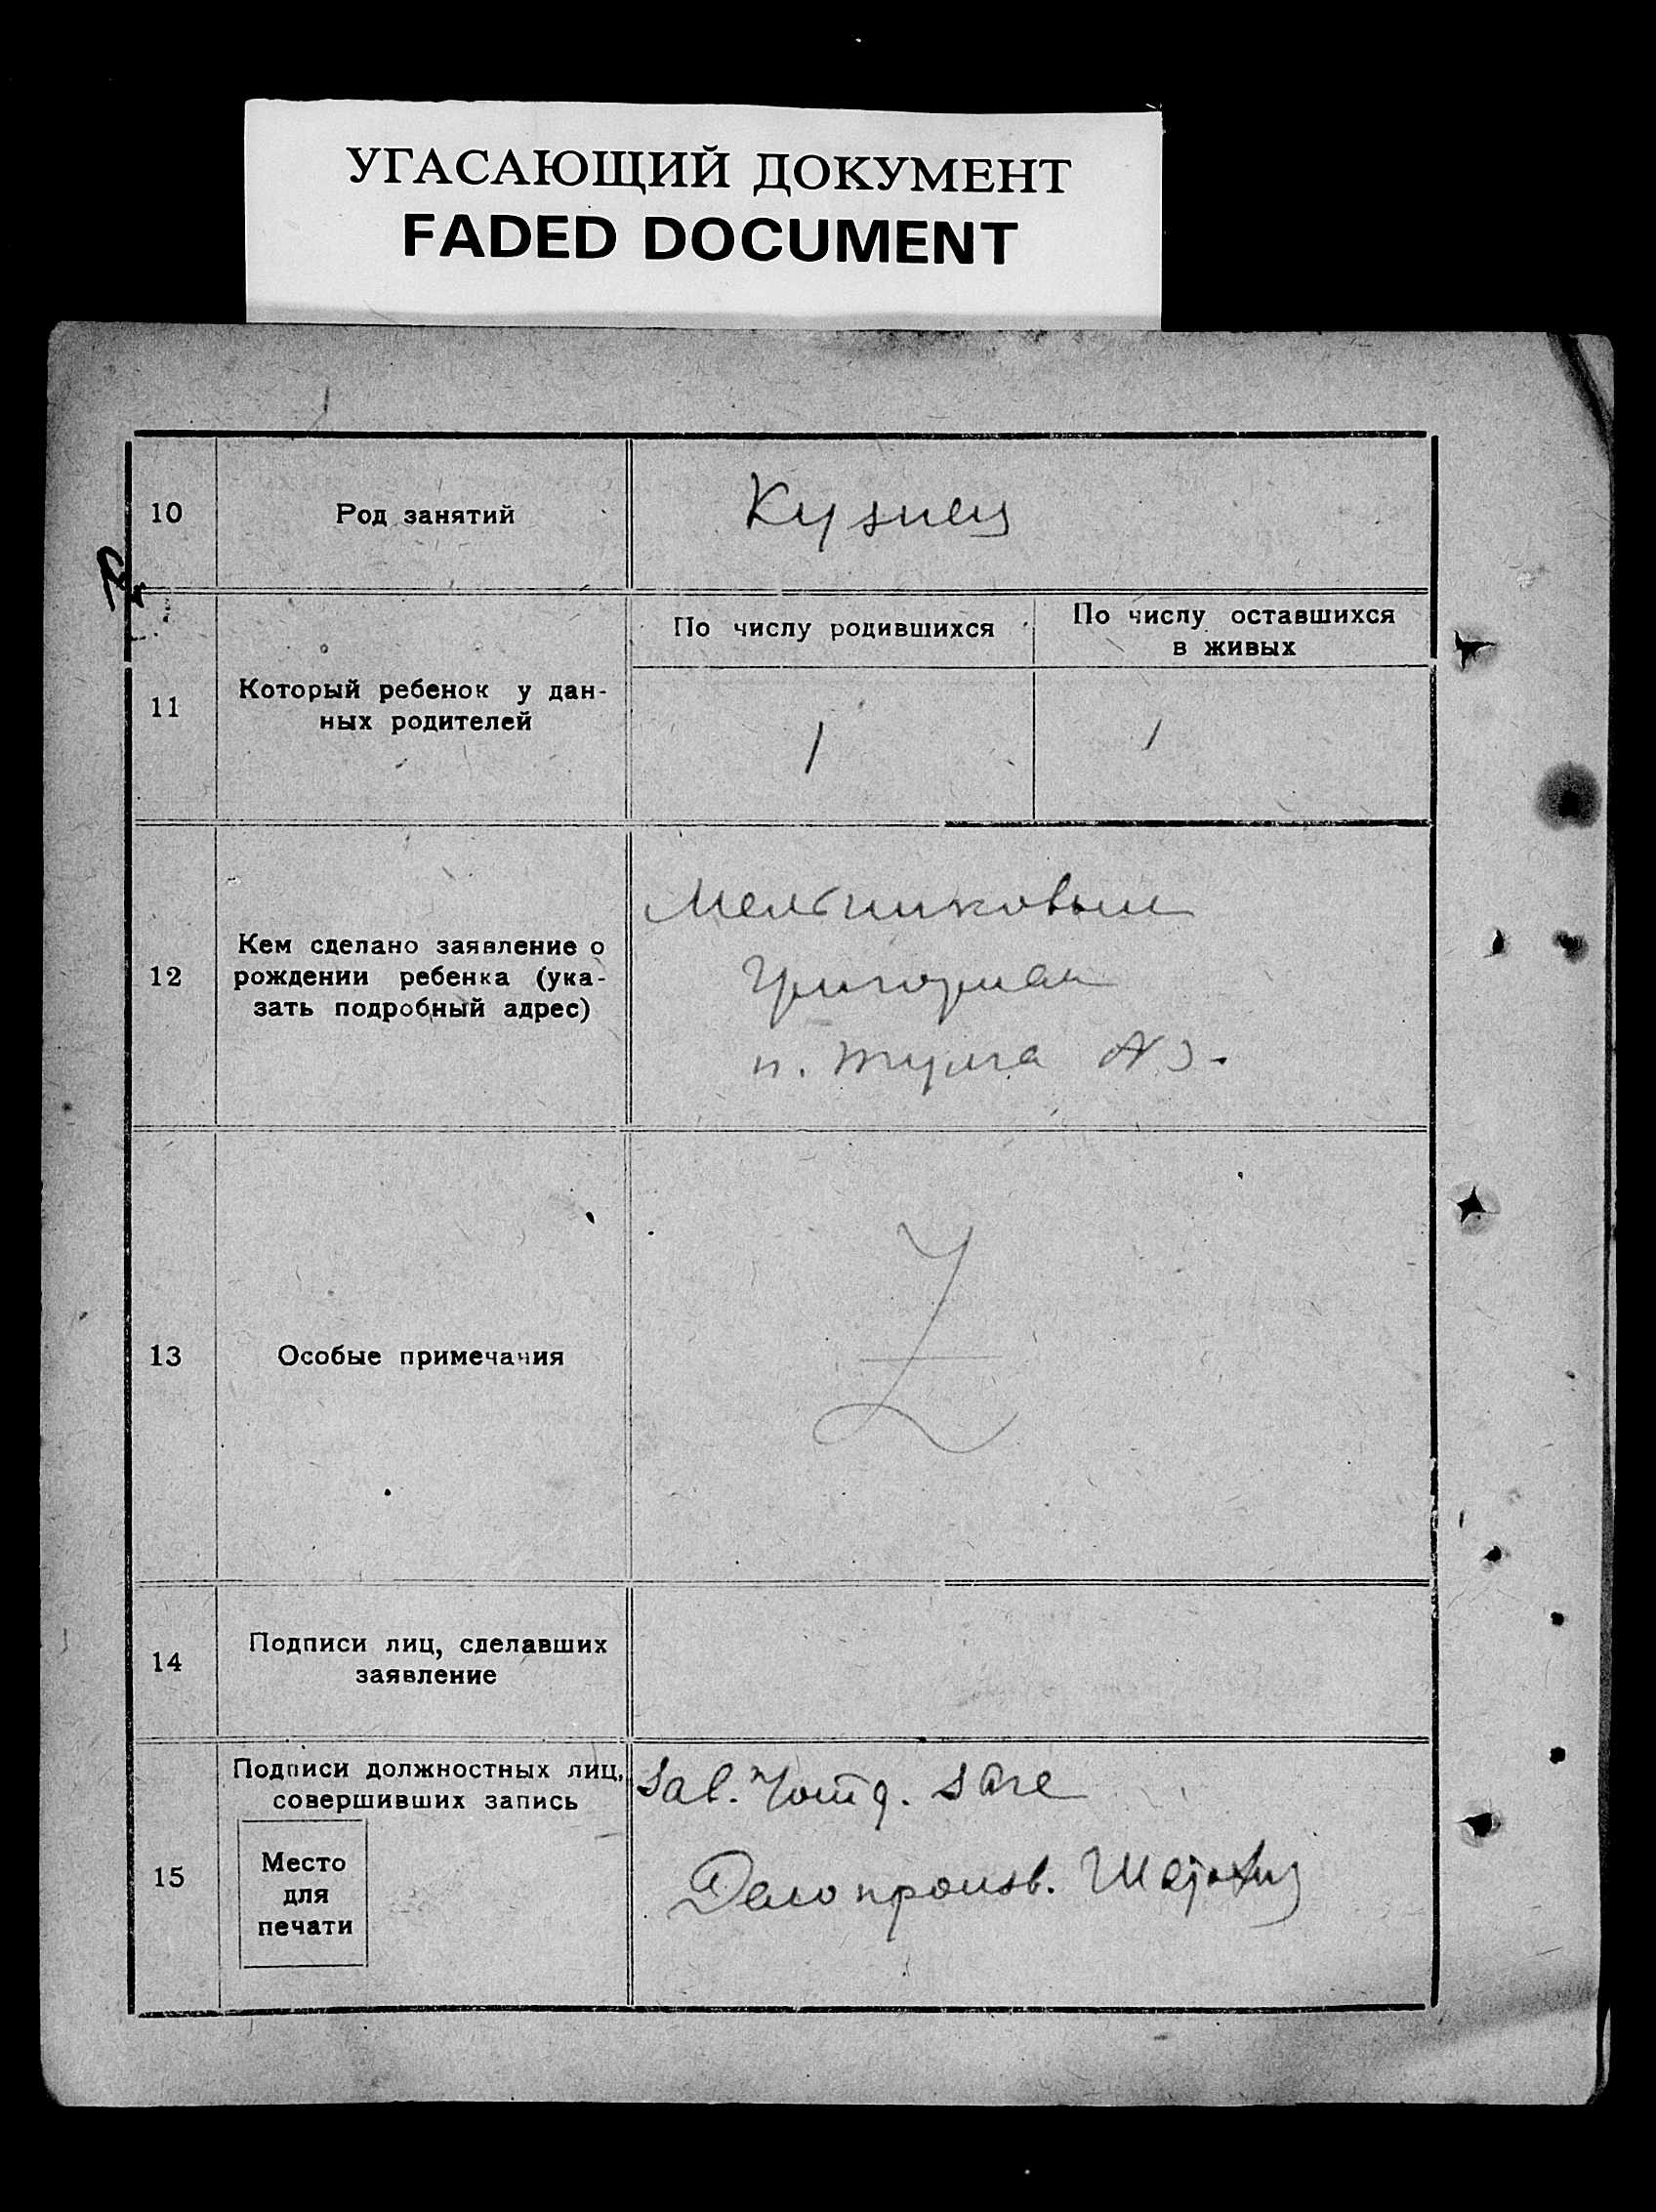 УГАСАЮЩИЙ ДОКУМЕНТ
FADED DOCUMENT
10
Род занятий
Кузнец
11
Который ребенок у дан-
ных родителей
По числу родившихся
По числу оставшихся
в живых
1
1
12
Кем сделано заявление о
рождении ребенка (ука-
зать подробный адрес)
Мельниковым
Григорием
п.
13
Особые примечания
Z
14
Подписи лиц, сделавших
заявление
15
Подписи должностных лиц,
совершивших запись
Место
для
печати
Зав.
Делопроизв.